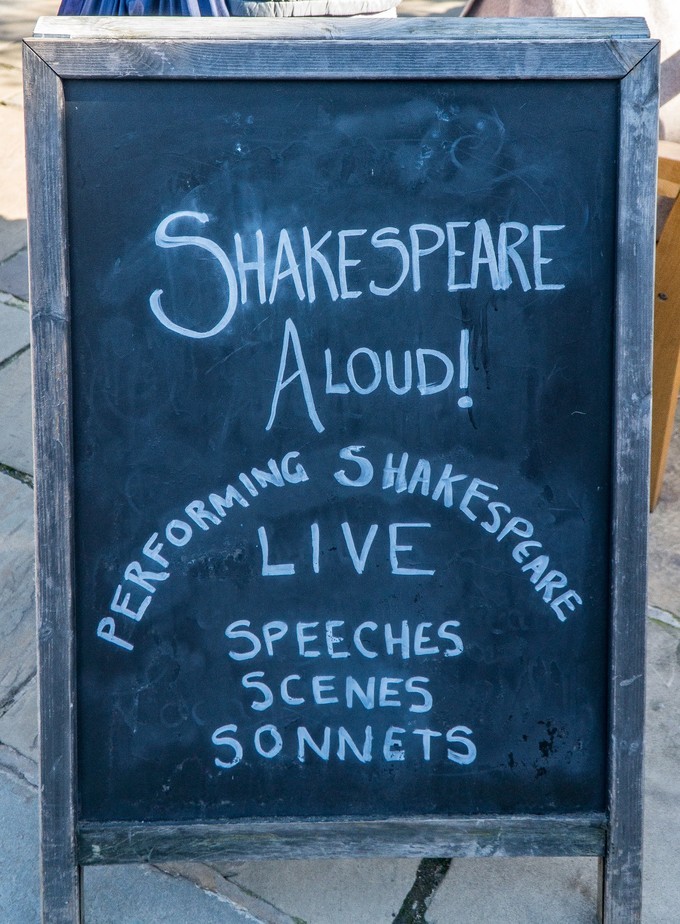 SHAKESPEARE
ALOUD!
PERFORMING SHAKESPEARE
LIVE
SPEECHES
SCENES
SONNETS